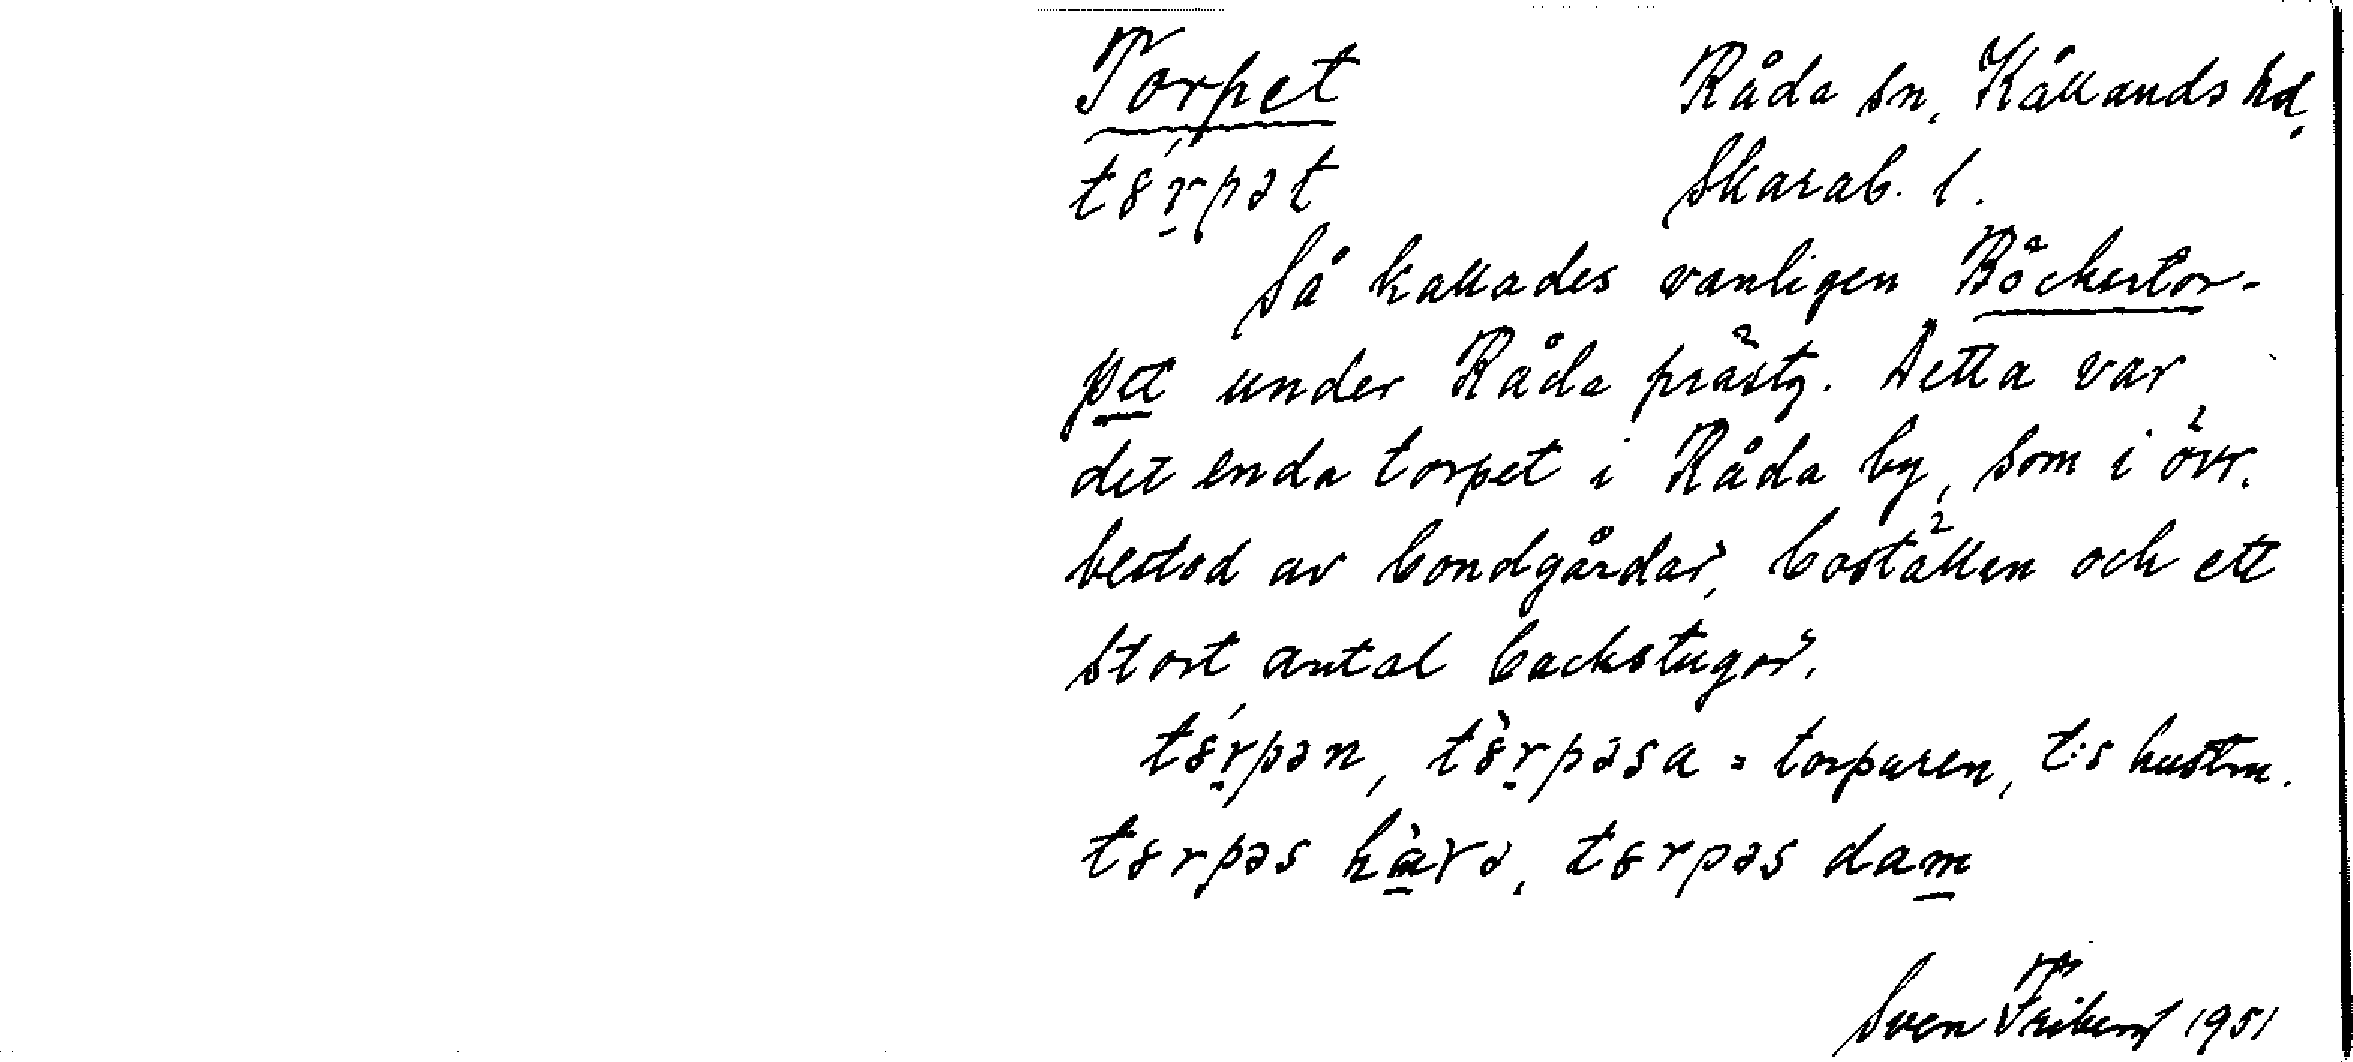 Torpet Råda sn, Kållands hd,
tȣ́rpət Skarab. l.
Så kallades vanligen Böckertor-
pet under Råda prästg. Detta var
det enda torpet i Råda by, som i övr.
bestod av bondgårdar, boställen och ett
stort antal backstugor.
tȣ́rpən, tȣ̀rpəsa = torparen, t:s hustru.
tȣrpəs hàrə, tȣrpəs dam
Sven Friberg 1951